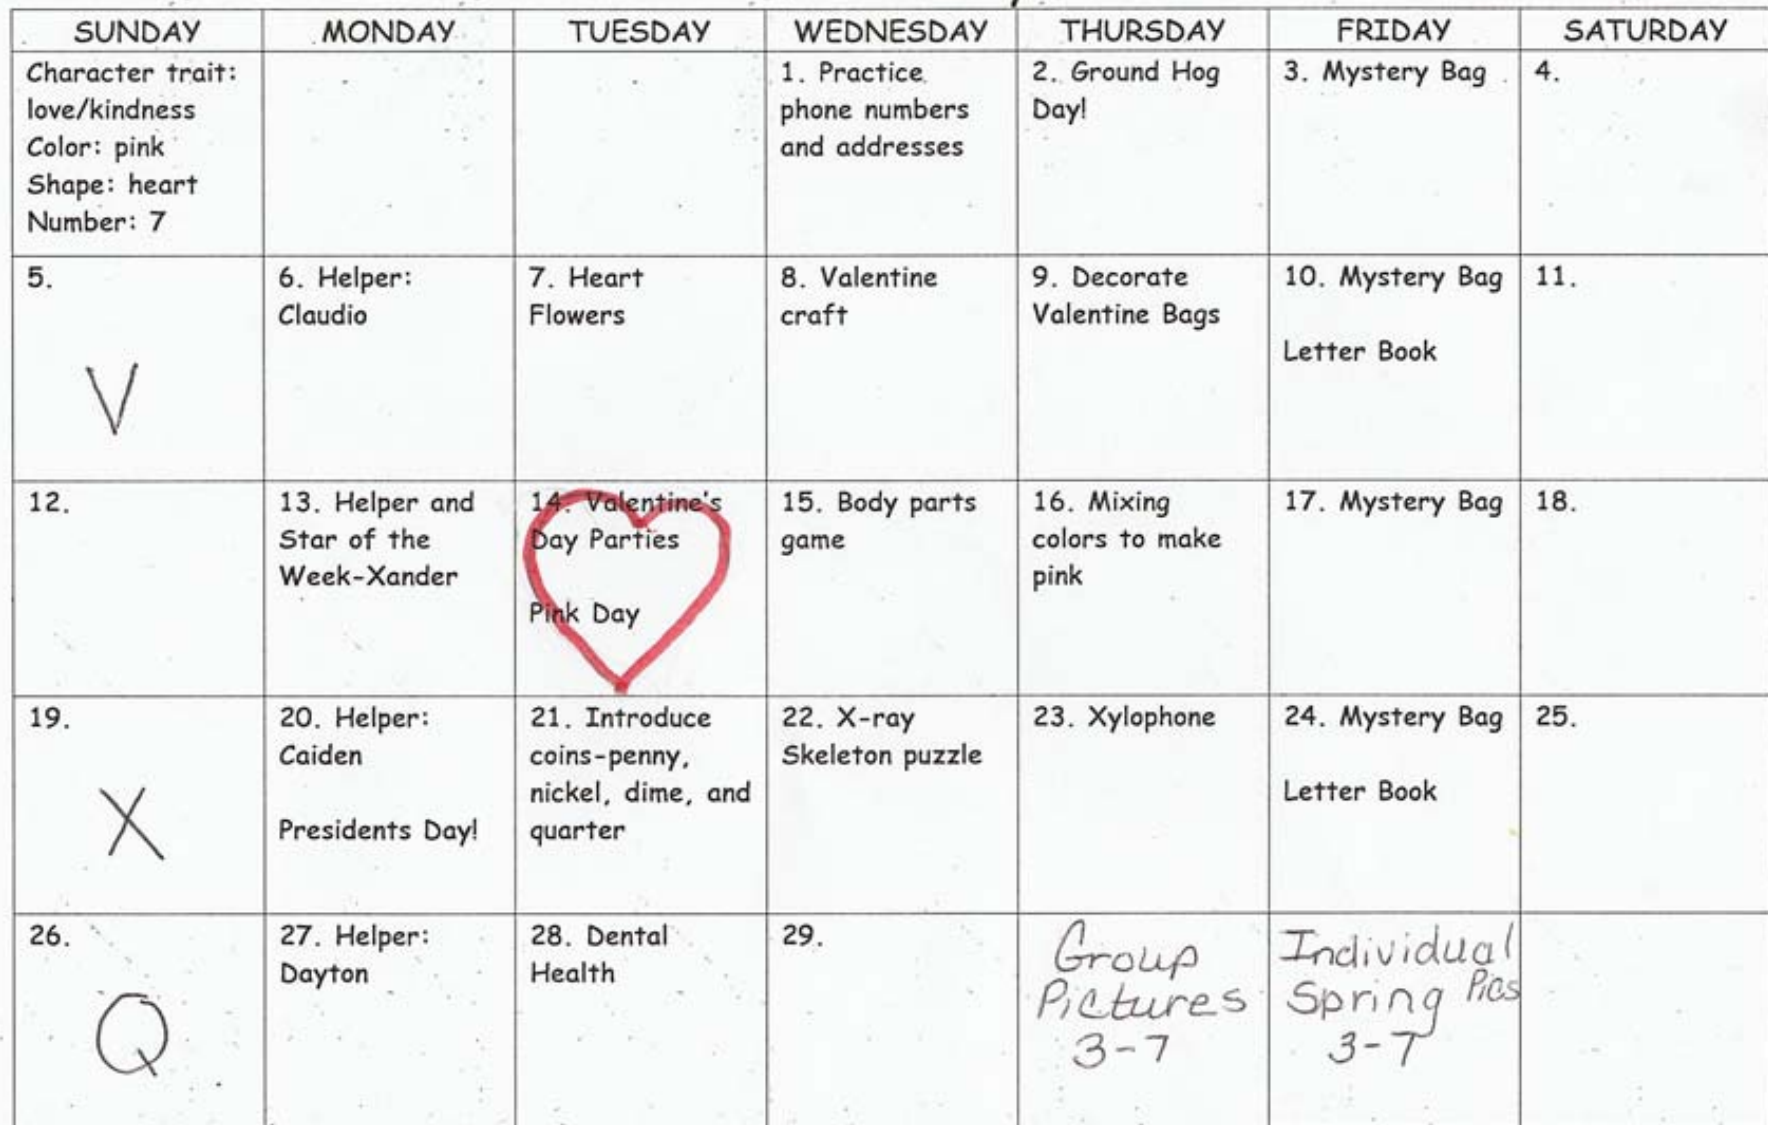 SUNDAY MONDAY TUESDAY WEDNESDAY THURSDAY FRIDAY SATURDAY
Character trait:
love/kindness
Color: pink
Shape: heart
Number: 7
1. Practice
phone numbers
and addresses
2. Ground Hog
Day!
3. Mystery Bag
4.
5.
V
6. Helper:
Claudio
7. Heart
Flowers
8. Valentine
craft
9. Decorate
Valentine Bags
10. Mystery Bag
Letter Book
11.
12.
13. Helper and
Star of the
Week-Xander
14. Valentine's
Day Parties
Pink Day
15. Body parts
game
16. Mixing
colors to make
pink
17. Mystery Bag
18.
19.
X
20. Helper:
Caiden
Presidents Day!
21. Introduce
coins-penny,
nickel, dime, and
quarter
22. X-ray
Skeleton puzzle
23. Xylophone
24. Mystery Bag
Letter Book
25.
26.
Q
27. Helper:
Dayton
28. Dental
Health
29.
Group
Pictures
3-7
Individual
Spring Pics
3-7